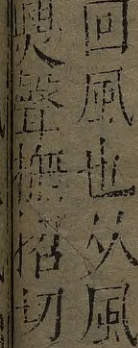 回風也从風
聲撫招切